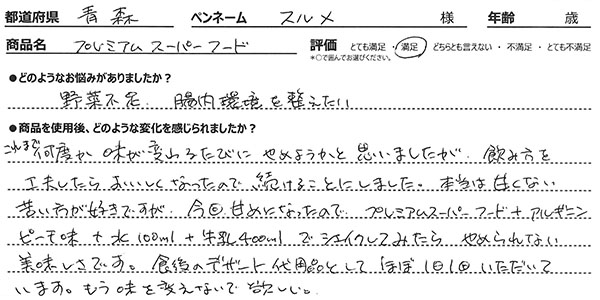 都道府県 青森 ペンネーム スルメ 様 年齢 歳
商品名 プレミアムスーパーフード 評価 とても満足 ・ 満足 どちらとも言えない ・ 不満足 ・ とても不満足
*○で囲んでお選びください。
●どのようなお悩みがありましたか？
野菜不足、腸内環境を整えたい
●商品を使用後、どのような変化を感じられましたか？
これまで何度か味が変わるたびにやめようかと思いましたが、飲み方を
工夫したらおいしくなったので、続けることにしました。本当は甘くない
苦い方が好きですが、今回甘めになったので、プレミアムスーパーフード+アルギニン
ピーチ味+水100ml+牛乳400mlでシェイクしてみたらやめられない
美味しさです。食後のデザート代用品としてほぼ1日1回いただいて
います。もう味を変えないで欲しい。